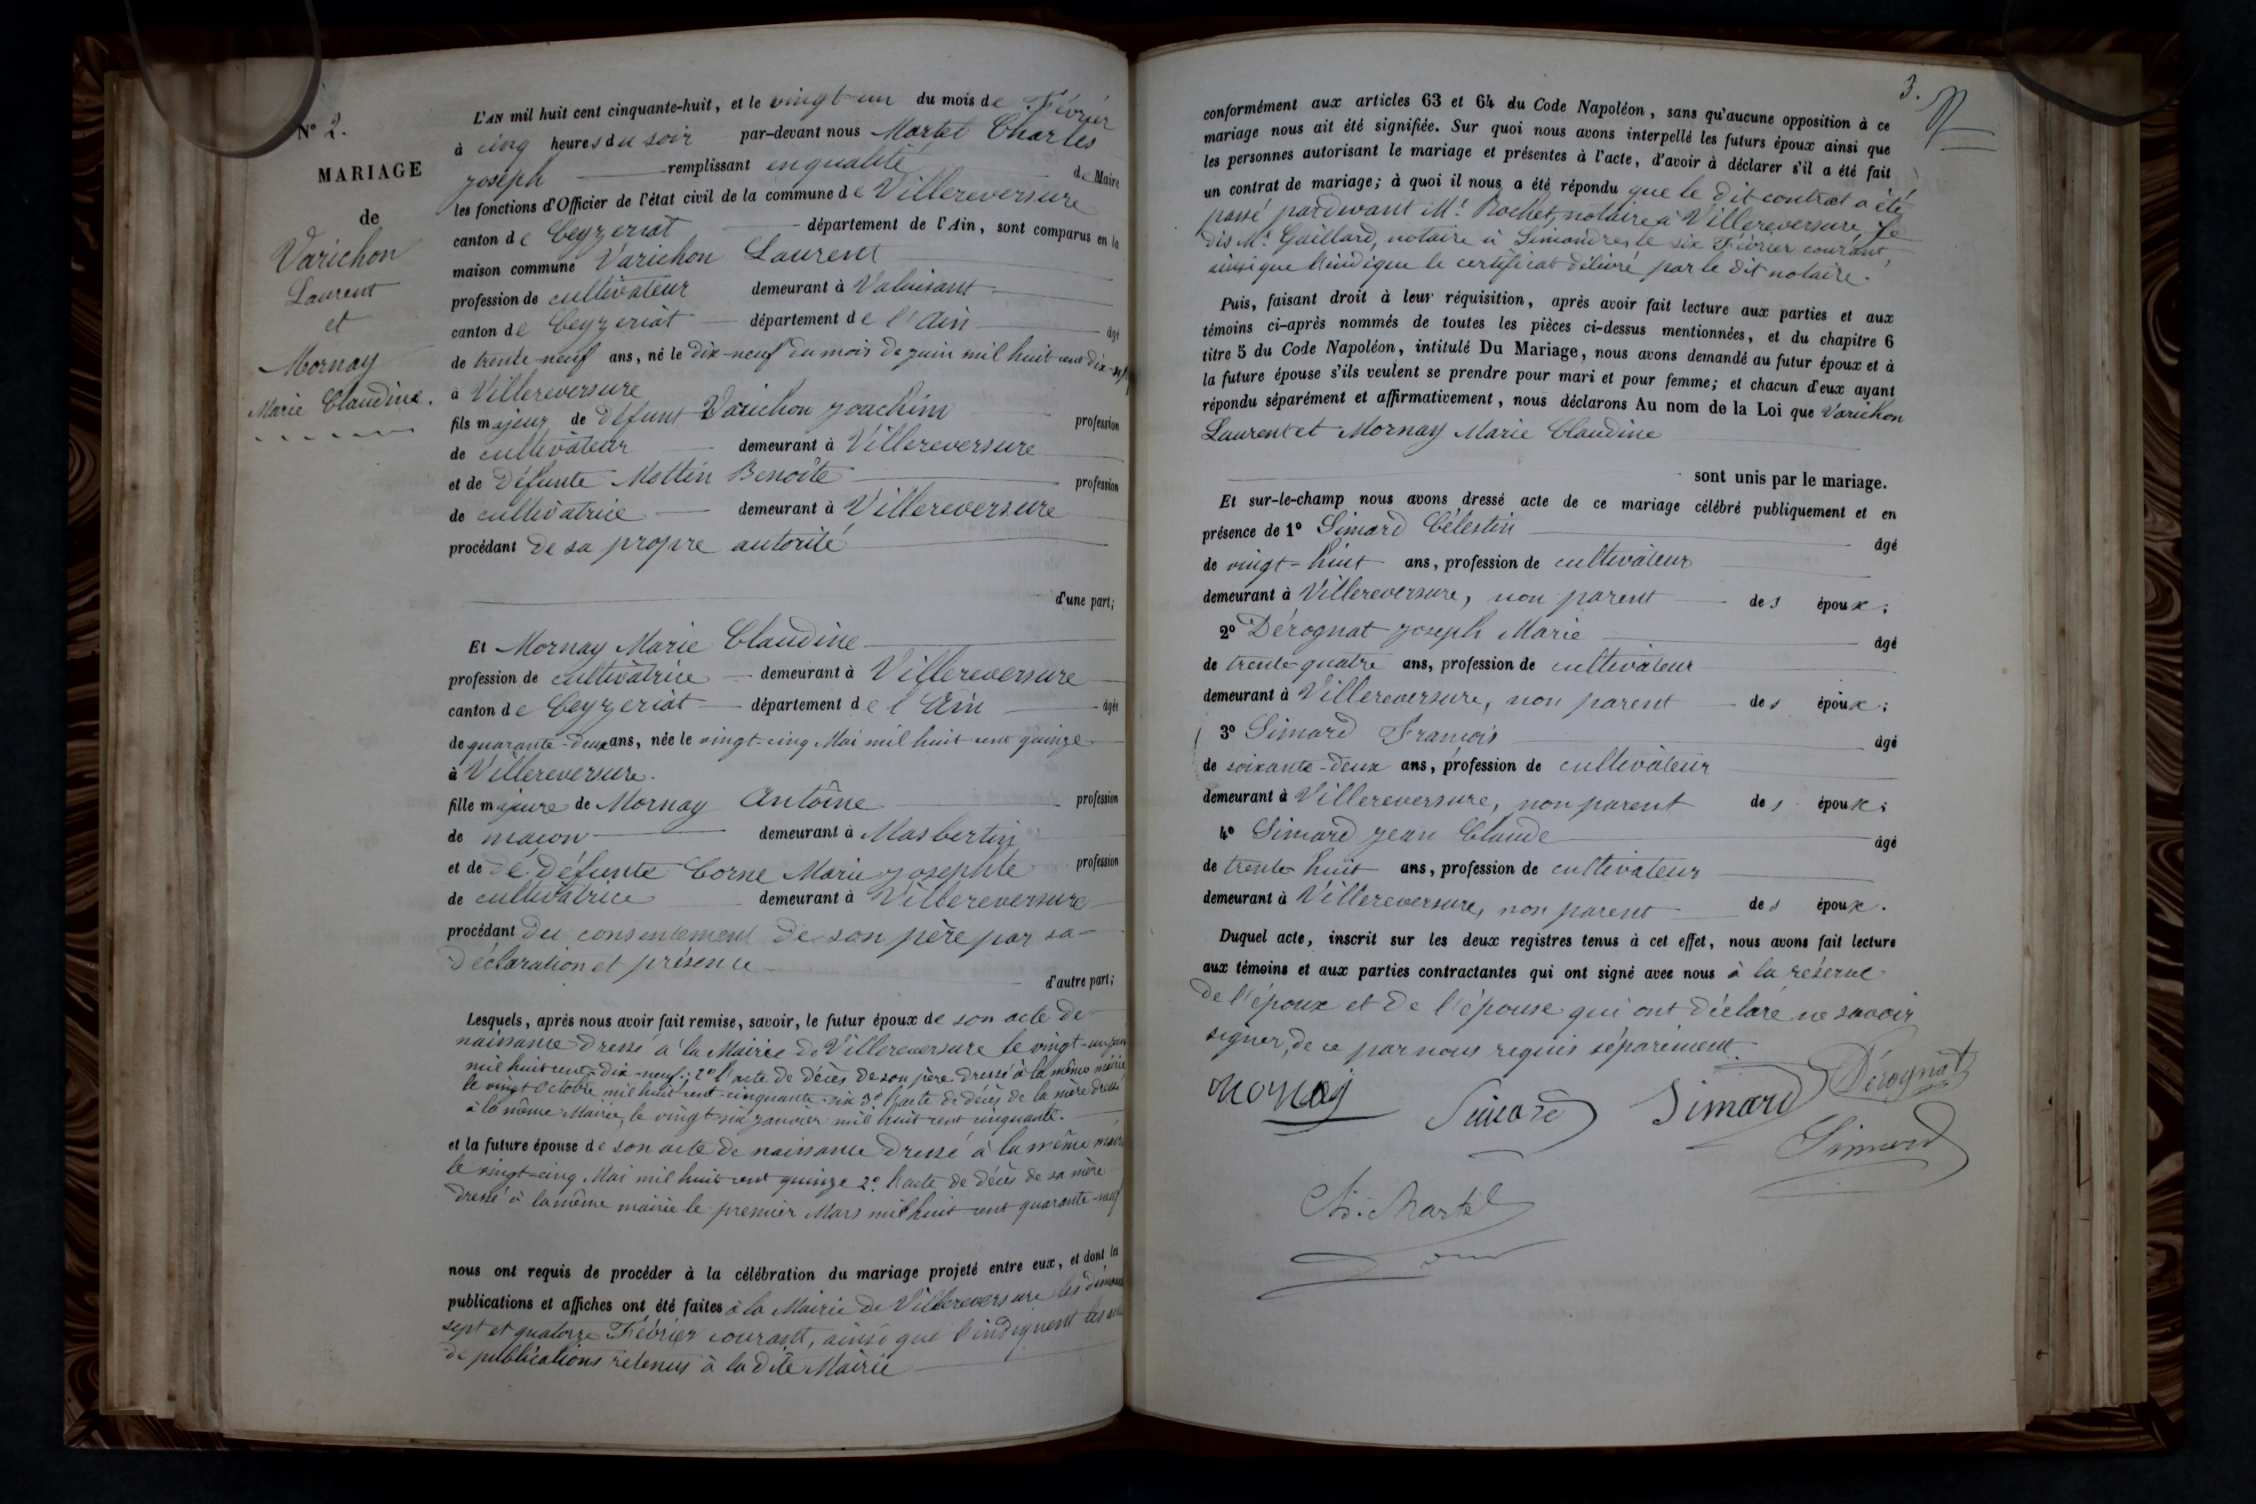 N° 2.
MARIAGE
de
Varichon
Laurent
et
Mornay
Marie Claudine.
L'AN mil huit cent cinquante-huit, et le vingt-un du mois de Février
à cinq heures du soir par-devant nous Martel Charles
joseph remplissant en qualité de Maire
les fonctions d'Officier de l'état civil de la commune de Villereversure
canton de Ceyzeriat département de l'Ain, sont comparus en la
maison commune Varichon Laurent
profession de cultivateur demeurant à
canton de Ceyzeriat département de l'Ain âgé
de trente-neuf ans, né le dix-neuf du mois de juin mil huit cent dix-neuf
à Villereversure
fils majeur de défunt Varichon joachim profession
de cultivateur demeurant à Villereversure
et de défunte Mottin Benoîte profession
de cultivatrice demeurant à Villereversure
procédant de sa propre autorité
d'une part;
Et Mornay Marie Claudine
profession de cultivatrice demeurant à Villereversure
canton de Ceyzeriat département de l'Ain âgée
de quarante-deux ans, née le vingt-cinq Mai mil huit cent quinze
à Villereversure.
fille majeure de Mornay Antoine profession
de maçon demeurant à Masbertin
et de dé défunte Corne Marie josephte profession
de cultivatrice demeurant à Villereversure
procédant du consentement de son père par sa
déclaration et présence
d'autre part;
Lesquels, après nous avoir fait remise, savoir, le futur époux de son acte de
naissance dressé à la Mairie de Villereversure le vingt-un juin
mil huit cent dix-neuf; 2° l'acte de décès de son père dressé à la même mairie
le vingt Octobre mil huit cent cinquante-six 3° l'acte de décès de la mère dressé
à la même Mairie, le vingt-six janvier mil huit cent cinquante.
et la future épouse de son acte de naissance dressé à la même mairie
le vingt-cinq Mai mil huit cent quinze 2° l'acte de décès de sa mère
dressé à la même mairie le premier Mars mil huit cent quarante-neuf
nous ont requis de procéder à la célébration du mariage projeté entre eux, et dont les
publications et affiches ont été faites à la Mairie de Villereversure les dimanches
sept et quatorze Février courant, ainsi que l'indiquent les actes
de publications retenus à la dite Mairie
3.
conformément aux articles 63 et 64 du Code Napoléon, sans qu'aucune opposition à ce
mariage nous ait été signifiée. Sur quoi nous avons interpellé les futurs époux ainsi que
les personnes autorisant le mariage et présentes à l'acte, d'avoir à déclarer s'il a été fait
un contrat de mariage; à quoi il nous a été répondu que le dit contrat a été
passé pardevant Mr. Rochet, notaire à Villereversure, je
dis Mr. Gaillard, notaire à Simandre, le six Février courant,
ainsi que l'indique le certificat délivré par le dit notaire.
Puis, faisant droit à leur réquisition, après avoir fait lecture aux parties et aux
témoins ci-après nommés de toutes les pièces ci-dessus mentionnées, et du chapitre 6
titre 5 du Code Napoléon, intitulé Du Mariage, nous avons demandé au futur époux et à
la future épouse s'ils veulent se prendre pour mari et pour femme; et chacun d'eux ayant
répondu séparément et affirmativement, nous déclarons Au nom de la Loi que Varichon
Laurent et Mornay Marie Claudine
sont unis par le mariage.
Et sur-le-champ nous avons dressé acte de ce mariage célébré publiquement et en
présence de 1° Simard Célestin âgé
de vingt-huit ans, profession de cultivateur
demeurant à Villereversure, non parent des époux;
2° Dérognat joseph Marie âgé
de trente-quatre ans, profession de cultivateur
demeurant à Villereversure, non parent des époux;
3° Simard François âgé
de soixante-deux ans, profession de cultivateur
demeurant à Villereversure, non parent des époux;
4° Simard jean Claude âgé
de trente huit ans, profession de cultivateur
demeurant à Villereversure, non parent des époux.
Duquel acte, inscrit sur les deux registres tenus à cet effet, nous avons fait lecture
aux témoins et aux parties contractantes qui ont signé avec nous à la réserve
de l'époux et de l'épouse qui ont déclaré ne savoir
signer, de ce par nous requis séparément.
Mornay Simard Simard Dérognat
Simard
Ch. Martel